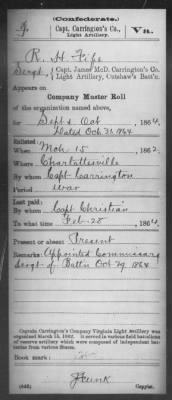 (Confederate.)
F. Capt. Carrington's Co., Va.
Light Artillery.
R. H. Fife
Sergt., Capt. James McD. Carrington's Co.,
Light Artillery, Cutshaw's Batt'n.
Appears on
Company Muster Roll
of the organization named above,
for Sept & Oct, 1864.
Dated Oct 31 1864
Enlisted:
When Mch. 15, 1862.
Where Charlottesville
By whom Capt Carrington
Period War
Last paid:
By whom Capt Christian
To what time Feb. 28, 1864.
Present or absent Present
Remarks: Appointed Commissary
Sergt of Batt'n Oct 29 1864
Captain Carrington's Company Virginia Light Artillery was
organized March 15, 1862. It served in various field battalions
of reserve artillery which were composed of independent batteries
from various States.
Book mark:
(642)
Copyist.